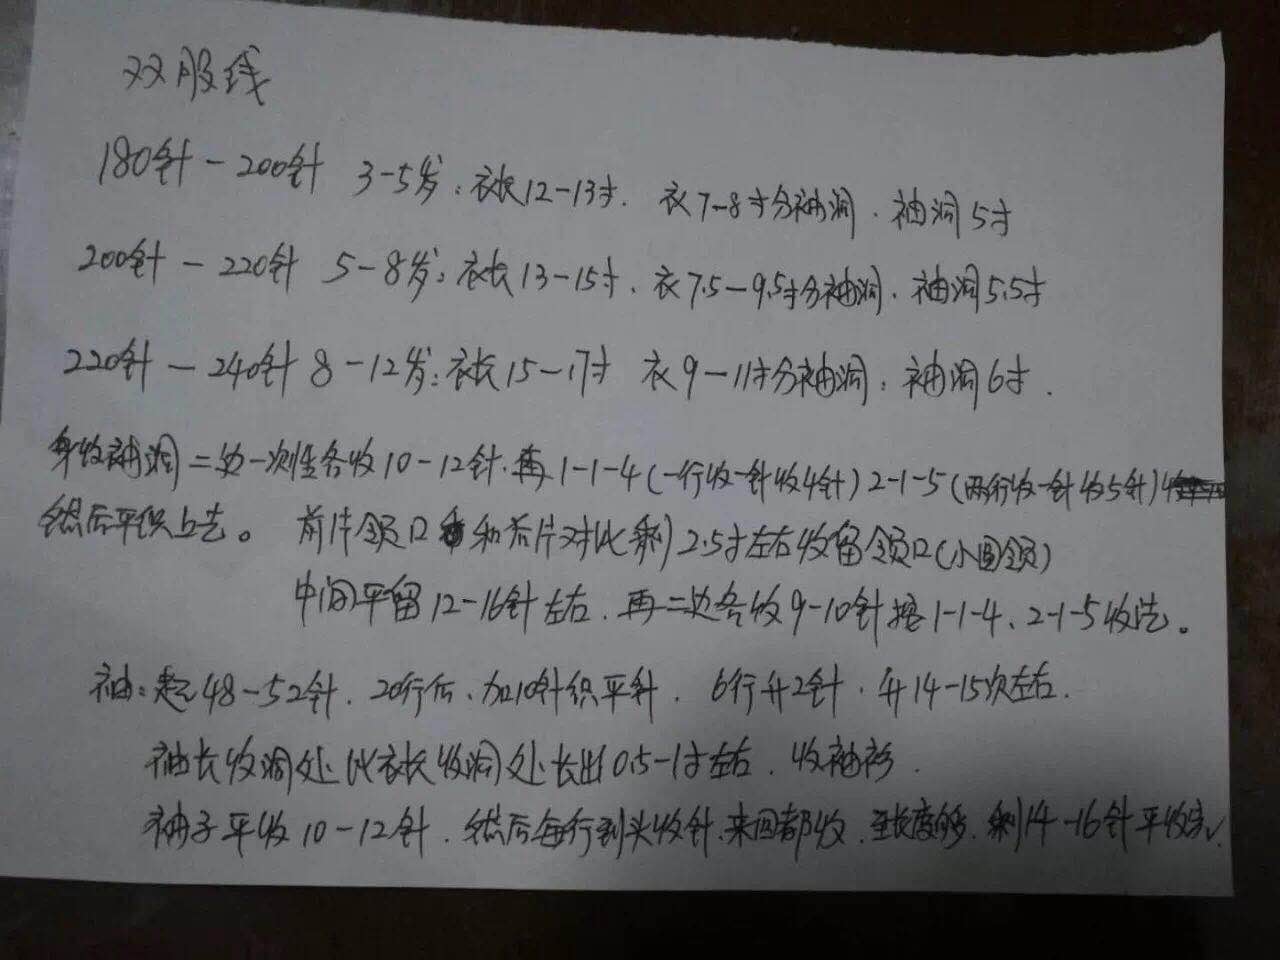 双股线
180针-200针 3-5岁:衣长12-13寸. 衣7-8寸分袖洞. 袖洞5寸
200针-220针 5-8岁:衣长13-15寸. 衣7.5-9.5寸分袖洞. 袖洞5.5寸
220针-240针 8-12岁:衣长15-17寸 衣9-11寸分袖洞. 袖洞6寸.
身收袖洞二边一次性各收10-12针.再1-1-4(一行收一针收4针)2-1-5(两行收一针收5针)
然后平织上去。 前片领口和后片对比剩2.5寸左右收留领口(小圆领)
中间平留12-16针左右.再二边各收9-10针按1-1-4、2-1-5收法。
袖:起48-52针.20行后.加10针织平针. 6行升2针.升14-15次左右.
袖长收洞处比衣长收洞处长出0.5-1寸左右.收袖衫.
袖子平收10-12针. 然后每行到头收针.来回都收.至长度够.剩14-16针平收完